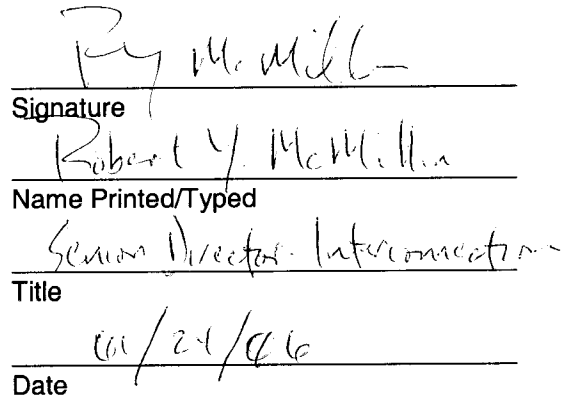 McMillin
Signature
Robert Y. McMillin
Name Printed/Typed
Senior Director-Interconnection
Title
Date